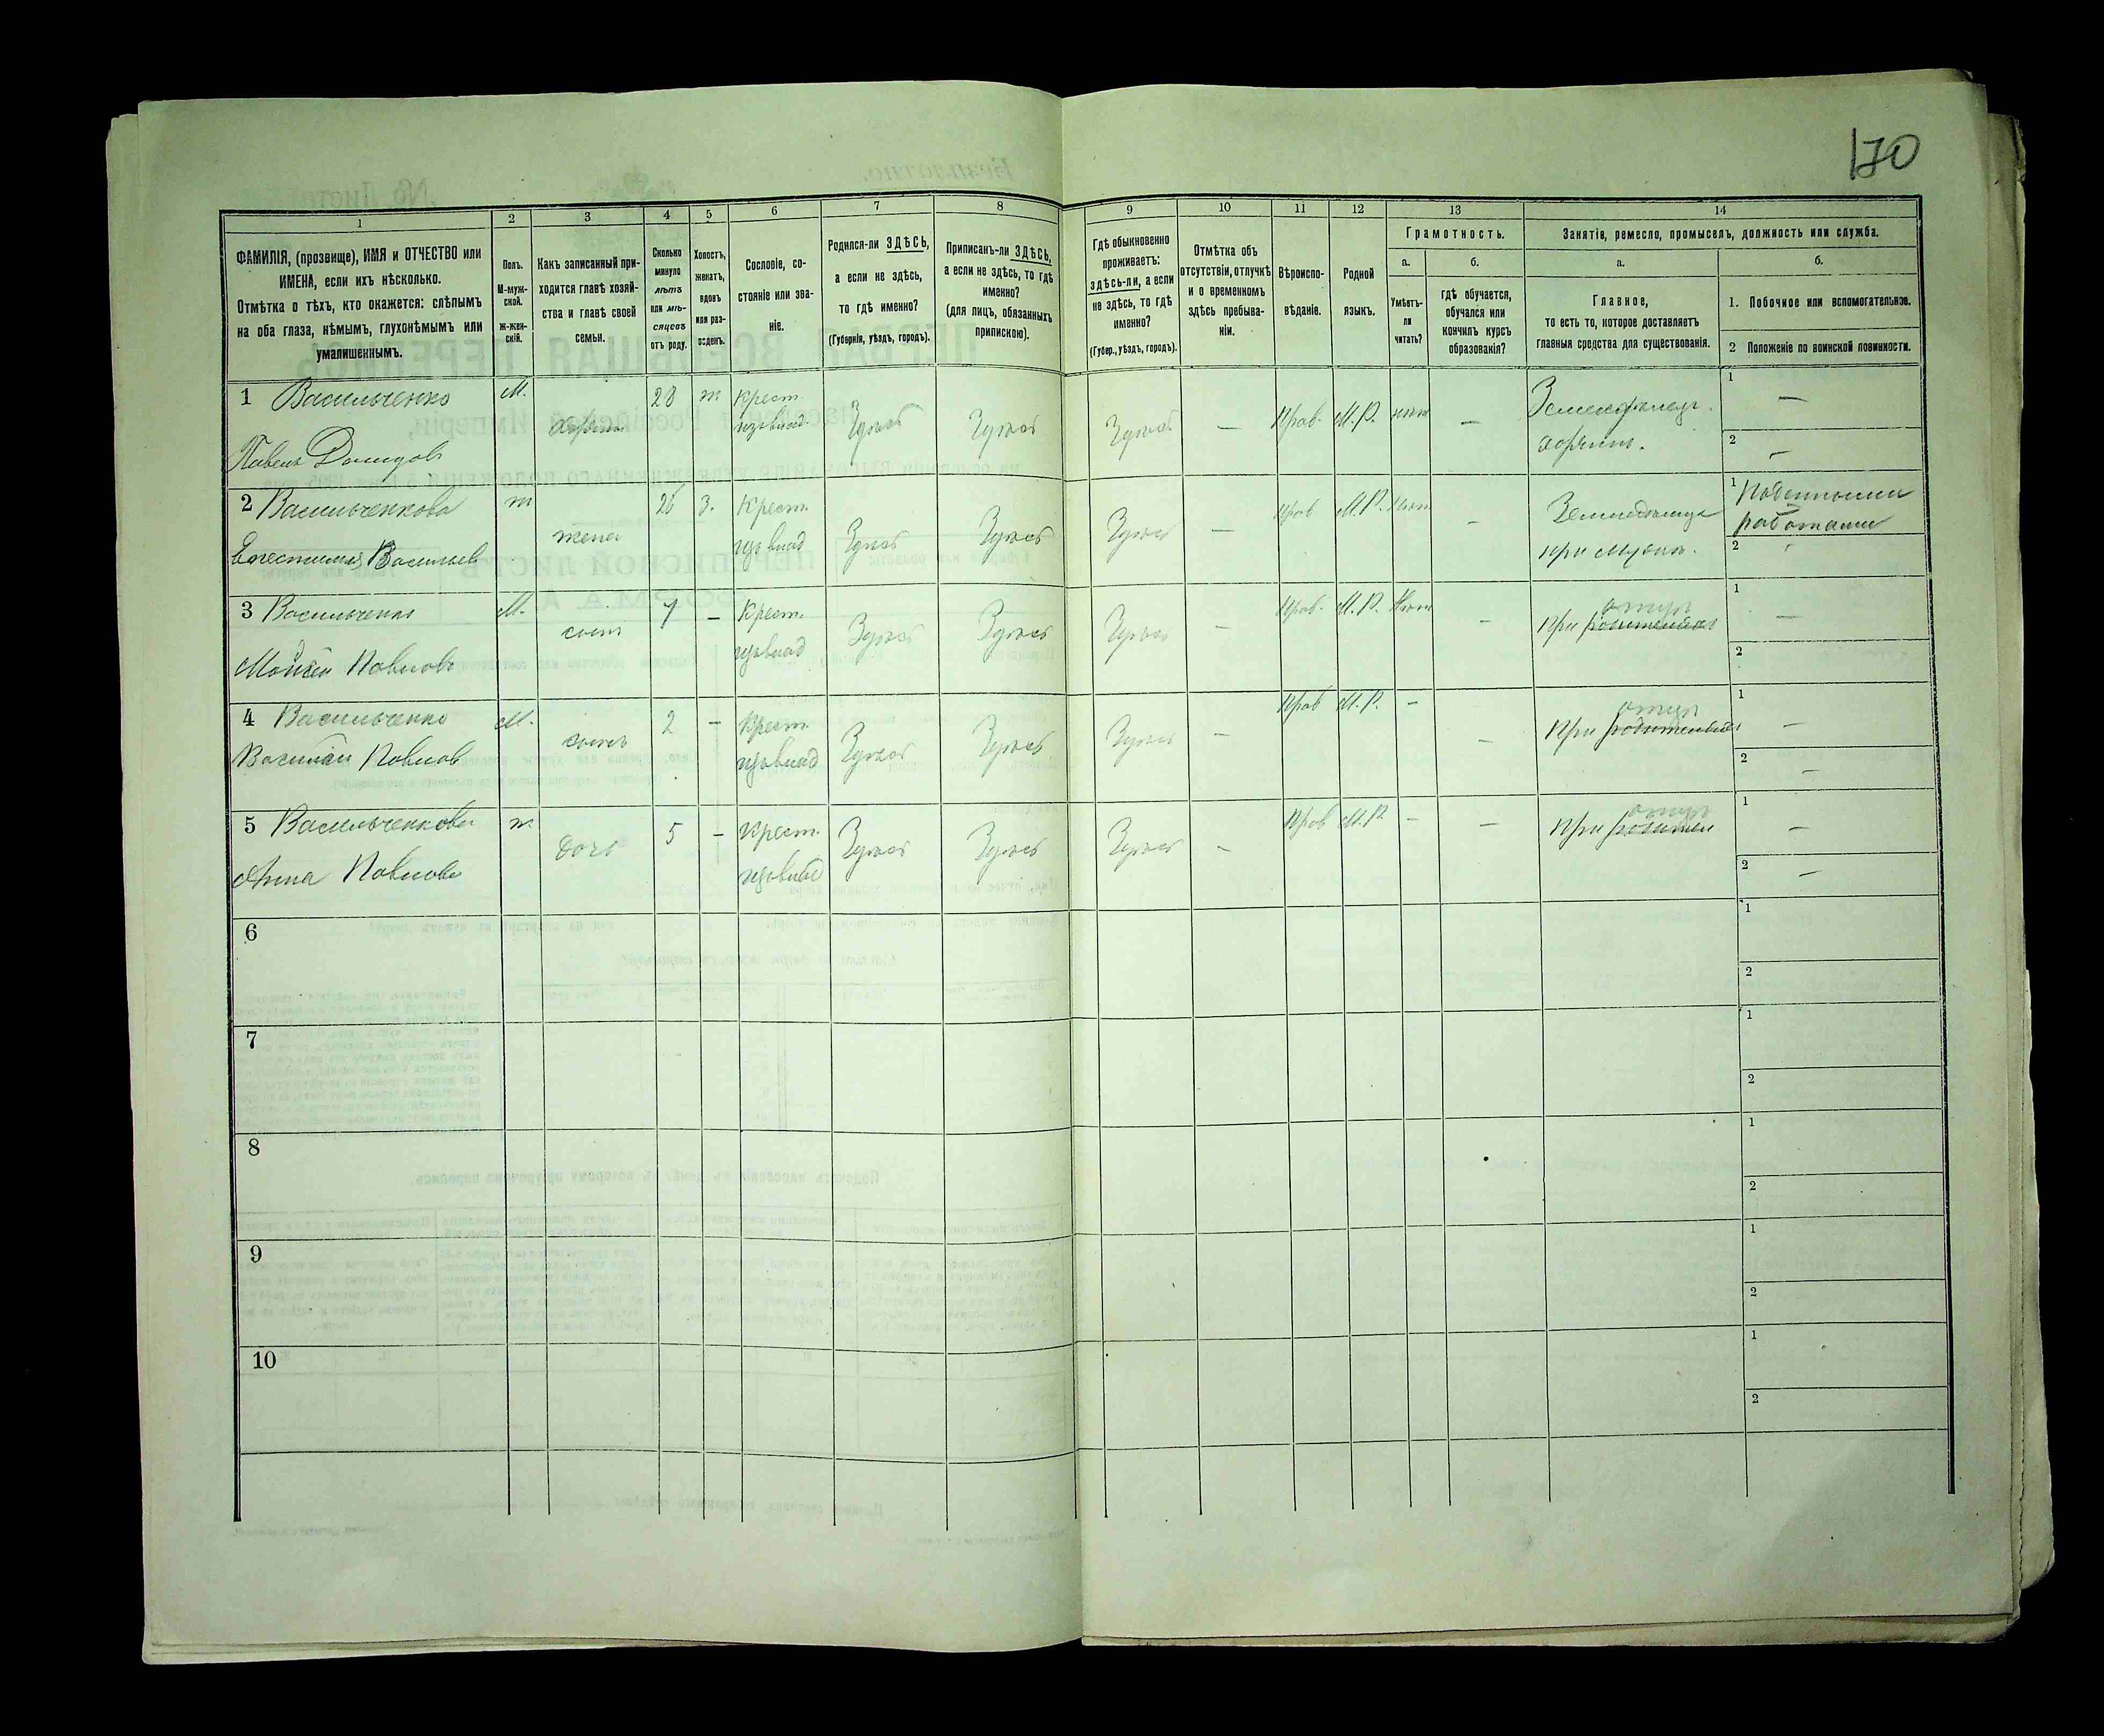 170
1
2
3
4
5
6
7
8
9
10
11
12
13
14
ФАМИЛІЯ, (прозвище), ИМЯ и ОТЧЕСТВО или
ИМЕНА, если ихъ нѣсколько.
Отмѣтка о тѣхъ, кто окажется: слѣпымъ
на оба глаза, нѣмымъ, глухонѣмымъ или
умалишеннымъ.
Полъ.
М-муж-
ской.
ж-жен-
скій.
Какъ записанный при-
ходится главѣ хозяй-
ства и главѣ своей
семьи.
Сколько
минуло
лѣтъ
или мѣ-
сяцевъ
отъ роду.
Холостъ,
женатъ,
вдовъ
или раз-
веденъ.
Сословіе, со-
стояніе или зва-
ніе.
Родился-ли ЗДѢСЬ,
а если не здѣсь,
то гдѣ именно?
(Губернія, уѣздъ, городъ).
Приписанъ-ли ЗДѢСЬ,
а если не здѣсь, то гдѣ
именно?
(для лицъ, обязанныхъ
припискою).
Гдѣ обыкновенно
проживаетъ:
здѣсь-ли, а если
не здѣсь, то гдѣ
именно?
(Губер., уѣздъ, городъ).
Отмѣтка объ
отсутствіи, отлучкѣ
и о временномъ
здѣсь пребыва-
ніи.
Вѣроиспо-
вѣданіе.
Родной
языкъ.
Грамотность.
а.
Умѣетъ-
ли
читать?
б.
Гдѣ обучается,
обучался или
кончилъ курсъ
образованія?
Занятіе, ремесло, промыселъ, должность или служба.
а.
Главное,
то есть то, которое доставляетъ
главныя средства для существованія.
б.
1. Побочное или вспомогательное.
2 Положеніе по воинской повинности.
1 Васильченко М. 28 ж Крест. Прав. М.Р. нѣт Земледѣлецъ. 1 —
Павелъ Здѣсь Здѣсь Здѣсь — — хозяинъ. 2 —
2 Васильченкова ж 26 З. Крест. Прав М.Р. Нѣт Земледѣлица 1 Поденными
Васильев жена Здѣсь Здѣсь Здѣсь — — при мужѣ. работами
2
3 Васильченко М. сынъ 7 — Крест. Прав. М.Р. Нѣт отцѣ 1 —
Моисей Павловъ Здѣсь Здѣсь Здѣсь — — при родителях 2
4 Васильченко М. сынъ 2 — Крест. Прав М.Р. — отцѣ 1 —
Василий Павлов Здѣсь Здѣсь Здѣсь — — При родителях 2 —
5 Васильченкова ж дочь 5 — Крест. Прав М.Р. — отцѣ 1 —
Анна Павлова Здѣсь Здѣсь Здѣсь — — При родител 2 —
6 1
2
7 1
2
8 1
2
9 1
2
10 1
2